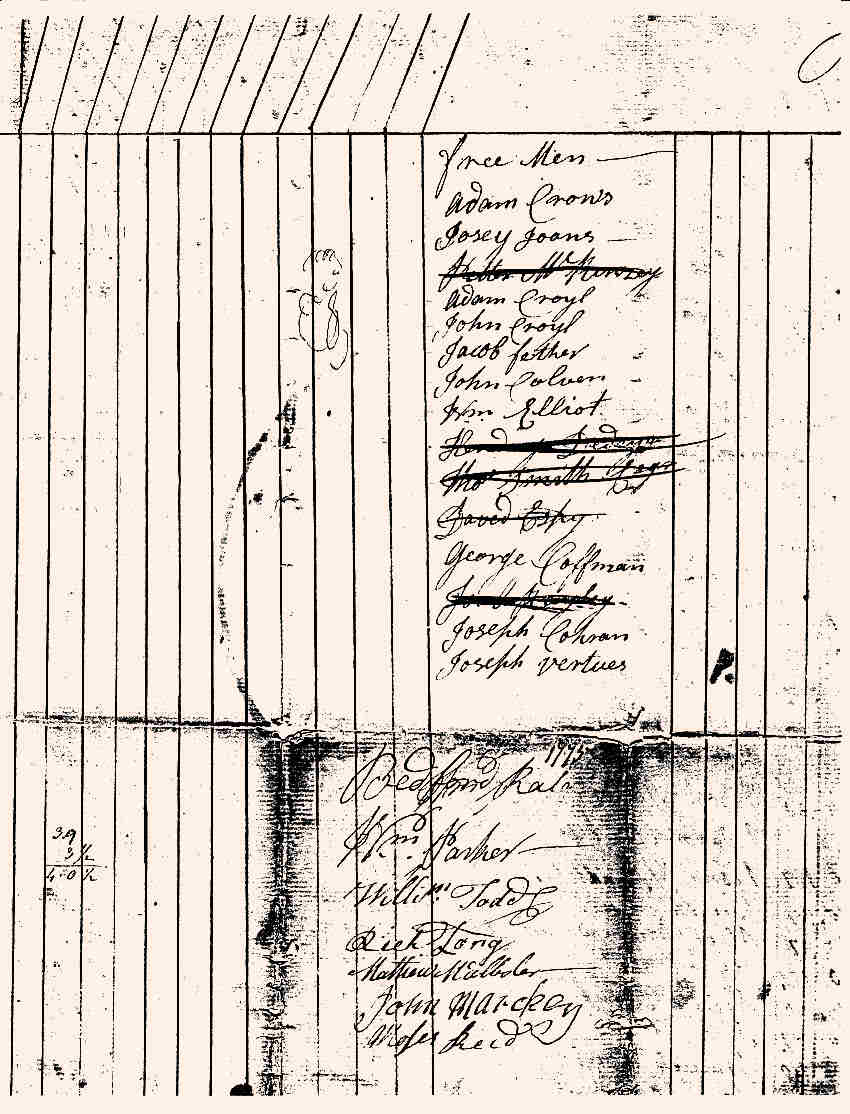 free Men
Adam Crons
Josey Joans
Petter McKinzey
Adam Croyl
John Croyl
Jacob father
John Colven
Wm Elliot
Henry
Thos Smith
David Espy
George Coffman
Joseph Cohran
Joseph vertues
1775
Bedford Rat
Wm. Parker
Willim Todd
Rich Long
Mathew
John Marckey
Moses Reid
39
3 1/2
4 0 1/2